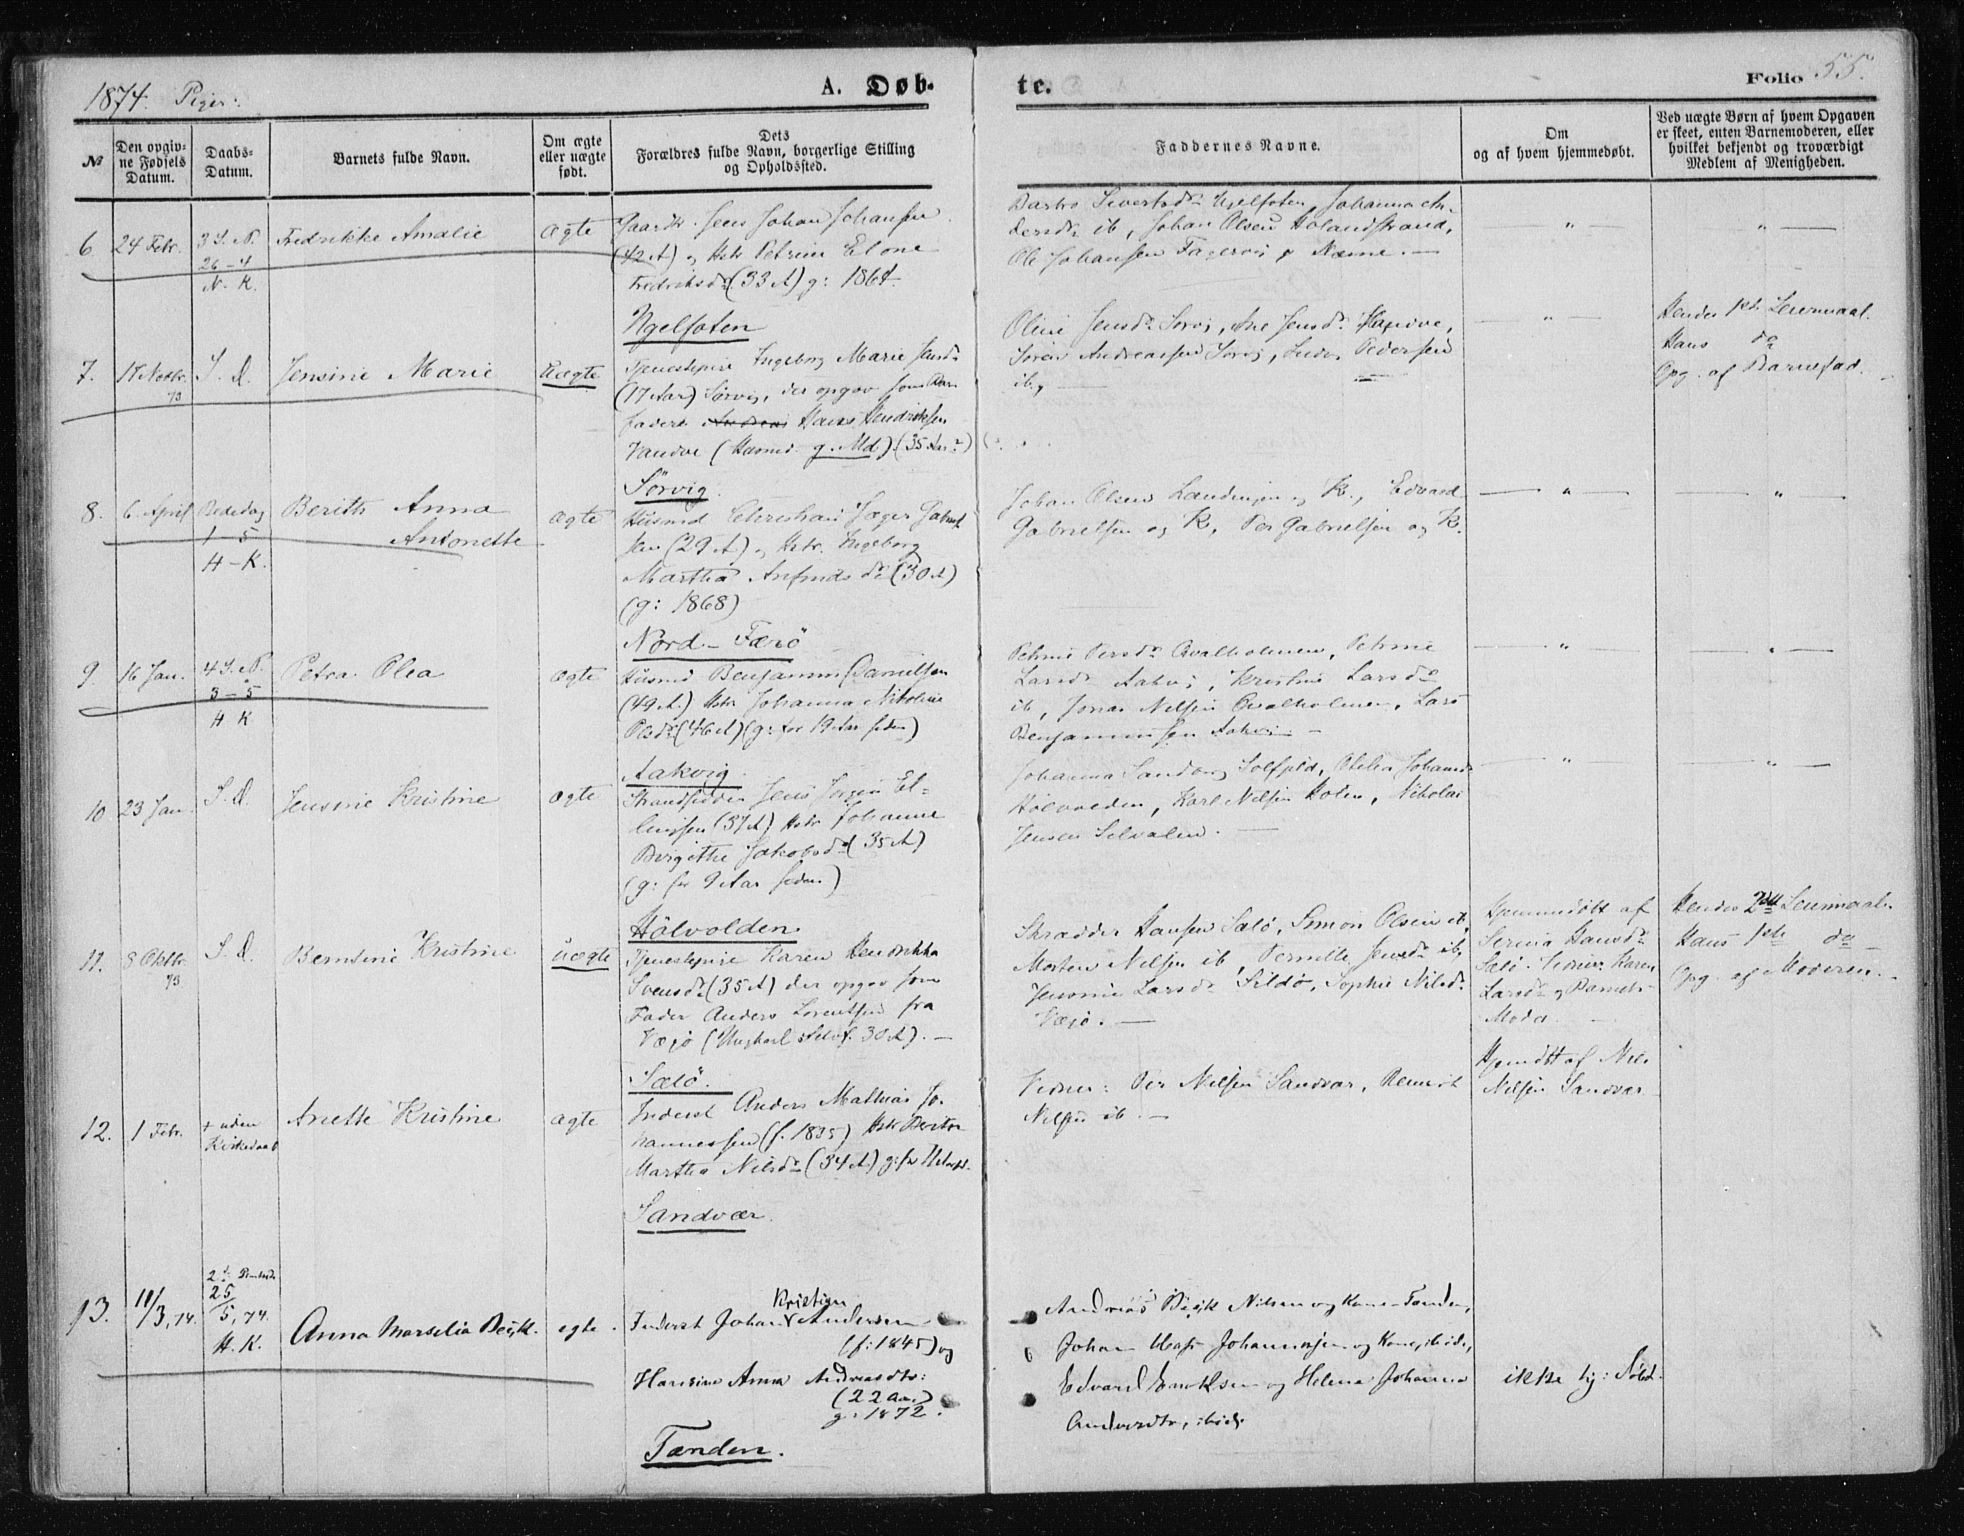 1874. Piger:
A. Døb-
te.
Folio 55.
№
Den opgiv-
ne Fødsels
Datum.
Daabs-
Datum.
Barnets fulde Navn.
Om ægte
eller uægte
født.
Dets
Forældres fulde Navn, borgerlige Stilling
og Opholdssted.
Faddernes Navne.
Om
og af hvem hjemmedøbt.
Ved uægte Børn af hvem Opgaven
er skeet, enten Barnemoderen, eller
hvilket bekjendt og troværdigt
Medlem af Menigheden.
6 24 Febr. 3 S. P.
26-4
N. K.
Fredrikke Amalie
ægte
Gaardbr. Jens Johan Johansen
(42 A) og Hstr Petrine Elone
Fredriksdr (33 A) g: 1864
Sivertsdr Johanna An-
dersdr ib, Johan Olsen Holandstrand,
Ole Johansen Fagervig
7. 17 Novbr. 73 S. D.
Jensine Marie
uægte
Ngelfoten
Tjenestepige Ingeborg Marie Jensdr
(17 Aar) Sørvig, der opgav som Barne
fader Hans Hendriksen
Vandve (g. Md) (35 Aar)
Oline Jensdr Sørvig, Ane Jensdr
Søren Andreassen Sørvig, Pedersen
ib,
Hendes 1ste Leiermaal.
Hans do
Opg. af Barnefad.
8. 6 April Bededag
1-5
H-K.
Berith Anna
Antonette
ægte
Sørvig.
Husmd Christian Jæger Gabriel
sen (29 A) og Hstr. Ingeborg
Martha Anfindsdr (30 A)
(g: 1868)
Johan Olsen og K., Edvard
Gabrielsen og K, Per Gabrielsen og K.
9. 16 Jan. 4 S. P.
3-5
H K
Petra Olea
ægte
Nord-Færö
Husmd Benjamin Danielsen
(49 A.) Hstr Johanna Nikoline
Olsdr (46 A) (g: for 19 Aar siden)
Petrine Persdr Qvalholmen, Petrine
Larsdr Aakvig, Kristine Larsdr
ib, Jonas Nilsen Qvalholmen, Lars
Benjaminsen Aakvig
10 23 Jan. S. D.
Jensine Kristine
ægte
Aakvig.
Strandsidder Jens Jørgen El-
lingsen (37 A) Hstr Johanne
Birgithe Jakobsdr (35 A)
(g: for 9 Aar siden)
Johanna Sandvig Solfjeld, Otilia Johansdr
Hölvolden, Karl Nilsen Holen, Nikolai
Jensen Selvalen.
11. 8 Oktbr. 73 S. D.
Berntine Kristine
uægte
Hölvolden.
Tjenestepige Karen Hendrikka
Svensdr (35 A) der opgav som
Fader Anders Lorentsen fra
Vægö (Ungkarl Selvf. 30 A).
Skrædder Hansen Salö, Simon Olsen ib,
Morten Nilsen ib, Pernille Jensdr ib,
Larsdr Sildö, Sophie Nilsdr
Vægö.
Hjemmedöbt af
Serina Hansdr
Salö. Vidner: Karen
Larsdr og Barnets
Moder
Hendes 2det Leiermaal.
Hans 1ste do
Opg. af Moderen.
12. 1 Febr. + uden
Kirkedaab
Anette Kristine
ægte
Sælö.
Inderst Anders Mathias Jo-
hannessen (f. 1835) Hstr
Martha Nilsdr (34 A)
Vidner: Per Nilsen Sandvær,
Nilsen ib.
Hjemdöbt af Nils
Nilsen Sandvær
Sandvær.
13. 11/3, 74. 2d Pintsed.
25
5, 74.
H. K.
Anna Marselia Beijk.
egte.
Inderst Johan Kristian Andersen
(f: 1845) og
Hansine Anna Andreasdtr:
(22 Aar)
g: 1872.
Tænden.
Andreas Beijk Nilsen og Kone Tænden,
Johan Johannesen og Kone, ibide,
Edvard Enoksen og Helene Johanna
, ibide
ikke hj: döbt.